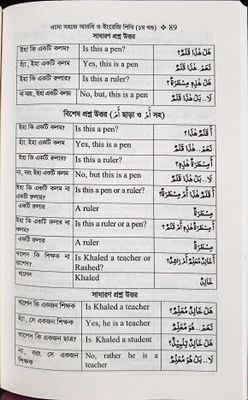 এসো সহজে আরবি ও ইংরেজি শিখি (১ম খণ্ড) ❖ 89
সাধারণ প্রশ্ন উত্তর
ইহা কি একটি কলম? Is this a pen? هَلْ هٰذَا قَلَمٌ؟
হ্যাঁ, ইহা একটি কলম Yes, this is a pen نَعَمْ.. هٰذَا قَلَمٌ
ইহা কি একটি রুলার? Is this a ruler? هَلْ هٰذِهِ مِسْطَرَةٌ؟
না বরং, ইহা একটি কলম No, but, this is a pen لَا.. بَلْ هٰذَا قَلَمٌ
বিশেষ প্রশ্ন উত্তর (أَمْ ছাড়া ও أَمْ সহ)
ইহা কি একটি কলম? Is this a pen? أَ هٰذَا قَلَمٌ؟
হ্যাঁ, ইহা একটি কলম Yes, this is a pen نَعَمْ.. هٰذَا قَلَمٌ
ইহা কি একটি রুলার Is this a ruler? أَ مِسْطَرَةٌ هٰذِهِ؟
না, বরং ইহা একটি কলম No, but this is a pen لَا.. بَلْ هٰذَا قَلَمٌ
ইহা কি একটি কলম না
একটি রুলার? Is this a pen or a ruler? أَ قَلَمٌ هٰذَا أَمْ مِسْطَرَةٌ؟
একটি রুলার A ruler مِسْطَرَةٌ
ইহা কি একটি রুলার
না কলম Is this a ruler or a pen? أَ مِسْطَرَةٌ هٰذِهِ أَمْ قَلَمٌ؟
একটি রুলার A ruler مِسْطَرَةٌ
খালেদ কি শিক্ষক না
রাশেদ? Is Khaled a teacher or
Rashed? أَ خَالِدٌ مُعَلِّمٌ أَمْ رَاشِدٌ؟
খালেদ Khaled خَالِدٌ
সাধারণ প্রশ্ন উত্তর
খালেদ কি একজন শিক্ষক Is Khaled a teacher هَلْ خَالِدٌ مُعَلِّمٌ؟
হ্যাঁ, সে একজন শিক্ষক Yes, he is a teacher نَعَمْ.. هُوَ مُعَلِّمٌ
খালেদ কি একজন ছাত্র? Is Khaled a student هَلْ خَالِدٌ تِلْمِيْذٌ؟
না, বরং সে একজন
শিক্ষক No, rather he is a
teacher لَا.. بَلْ هُوَ مُعَلِّمٌ